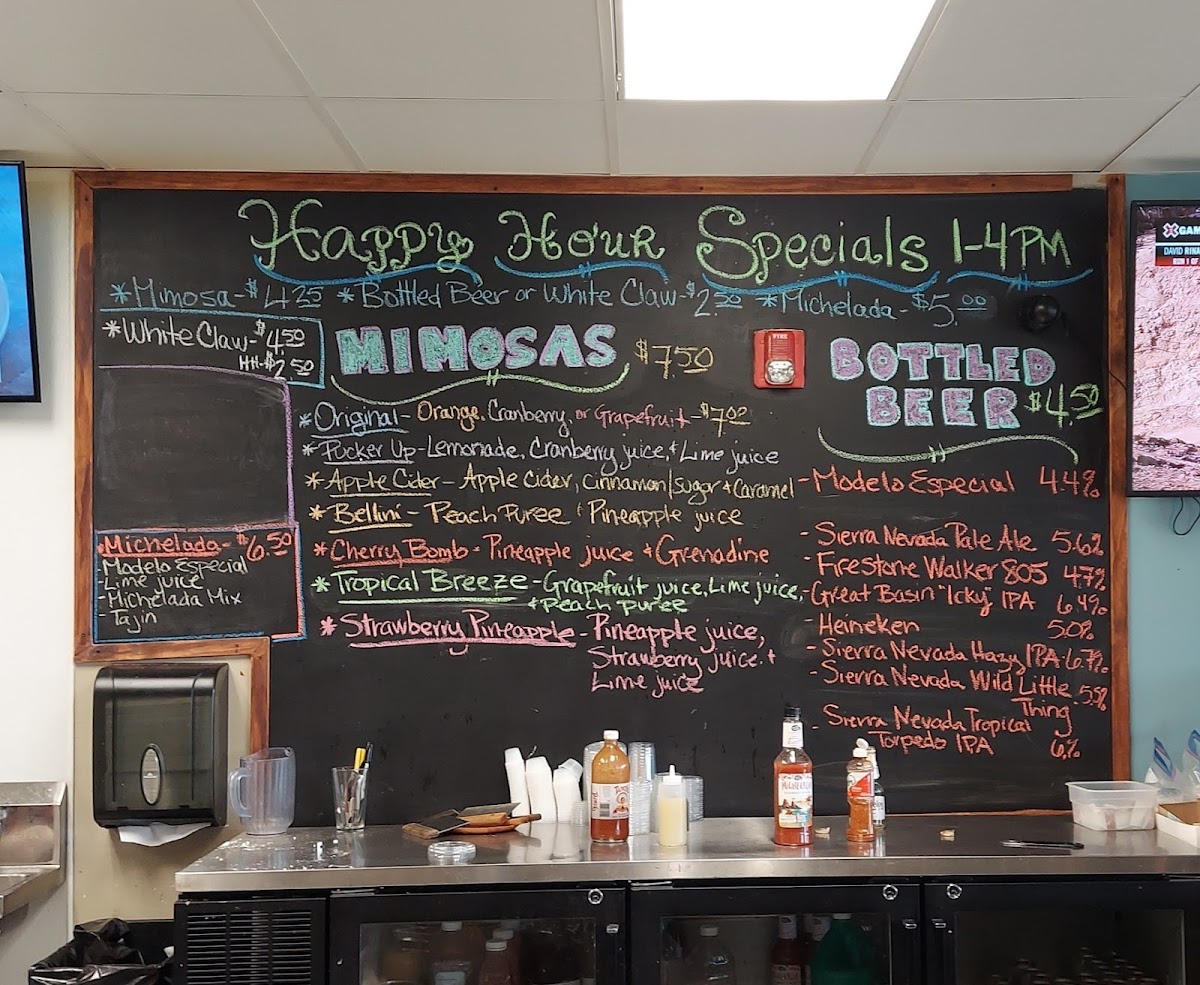 Happy Hour Specials 1-4PM
*Mimosa-$4.25 *Bottled Beer or White Claw-$2.50 *Michelada-$5.00
*White Claw-$4.50
HH-$2.50
MIMOSAS $7.50
*Original- Orange, Cranberry, or Grapefruit-$7.00
*Pucker Up-Lemonade, Cranberry juice, + Lime juice
*Apple Cider- Apple Cider, Cinnamon/Sugar + Caramel
*Bellini- Peach Puree + Pineapple juice
*Cherry Bomb- Pineapple juice + Grenadine
*Tropical Breeze-Grapefruit juice, Lime juice,
+ Peach puree
*Strawberry Pineapple- Pineapple juice,
Strawberry juice +
Lime juice
Michelada- $6.50
-Modelo Especial
-Lime juice
-Michelada Mix
-Tajin
FIRE
BOTTLED
BEER $4.50
-Modelo Especial 4.4%
-Sierra Nevada Pale Ale 5.6%
-Firestone Walker 805 4.7%
-Great Basin "Icky" IPA 6.4%
-Heineken 5.0%
-Sierra Nevada Hazy IPA-6.7%
-Sierra Nevada Wild Little
Thing 5.5%
Sierra Nevada Tropical
Torpedo IPA 6%
X GAM
DAVID RINA
RUN 1 OF